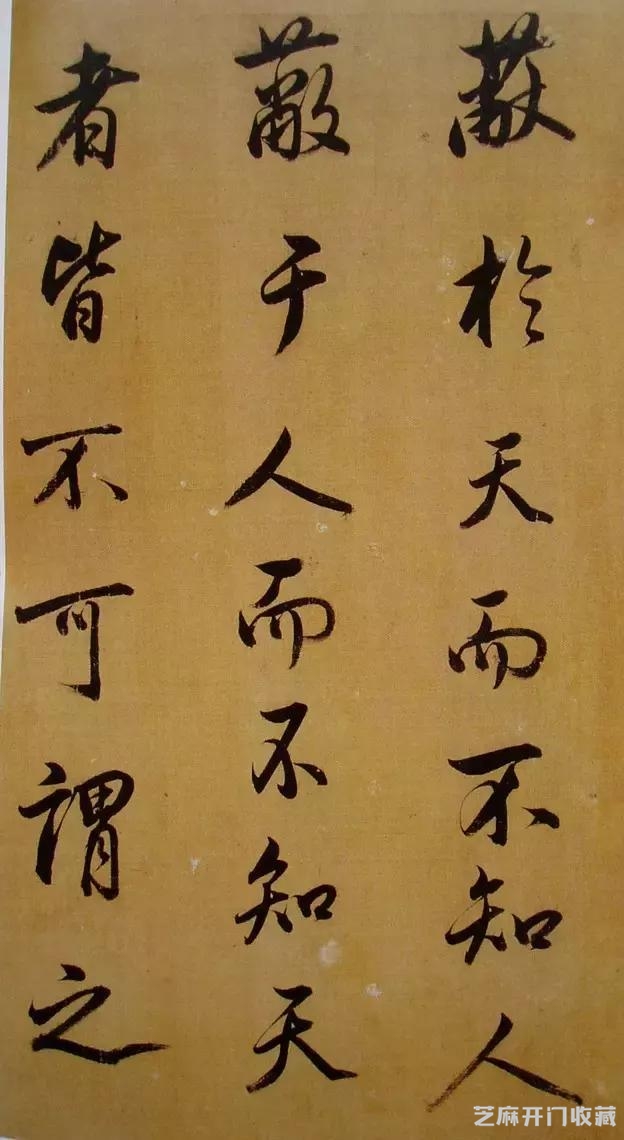 蔽於天而不知人
蔽于人而不知天
者皆不可謂之
芝麻开门收藏